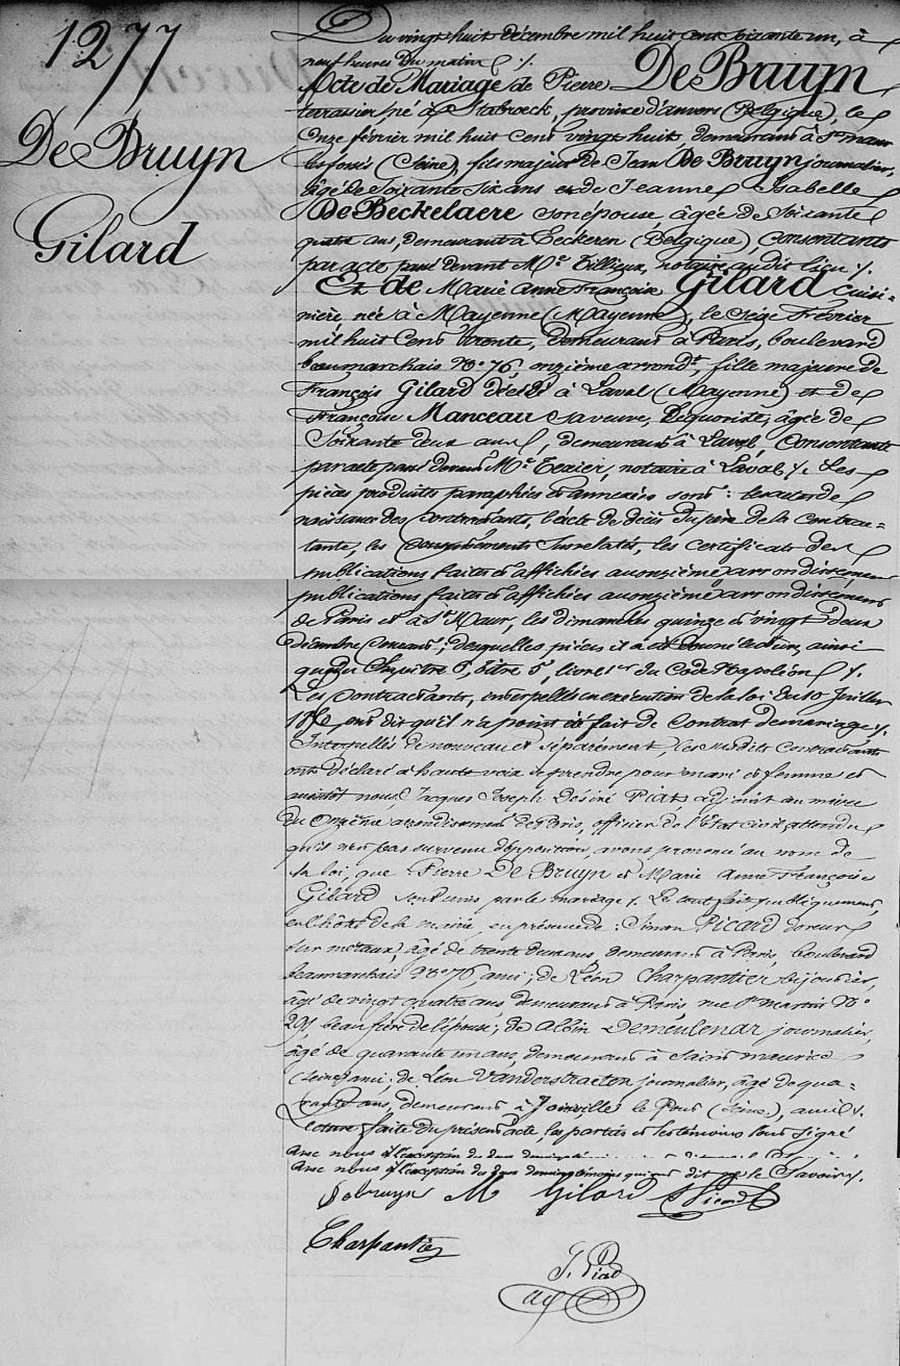 1277
De Bruyn
Gilard
Du vingt huit décembre mil huit cent soixante un, à
neuf heures du matin ./.
Acte de Mariage de Pierre De Bruyn
terrassier né à Stabroeck, province d'anvers (Belgique), le
onze février mil huit cent vingt huit, demeurant à St maur
les fossés (Seine), fils majeur de Jean De Bruyn journalier,
âgé de soixante six ans et de Jeanne Isabelle
De Beckelaere son épouse âgée de soixante
quatre ans, demeurant à Eeckeren (Belgique), consentants
par acte passé devant Me Tillieux, notaire audit lieu ./.
Et de Marie Anne Françoise Gilard cuisi-
nière, née à Mayenne (Mayenne), le seize février
mil huit cent trente, demeurant à Paris, boulevard
beaumarchais No 76, onzième arrondt, fille majeure de
François Gilard décédé à Laval (Mayenne) et de
Françoise Manceau sa veuve, âgée de
soixante deux ans, demeurant à Laval, consentante
par acte passé devant Me Texier, notaire à Laval ./. Les
pièces produites paraphées et annexées sont : les actes de
naissance des contractants, l'acte de décès du père de la contrac-
tante, les consentements susrelatés, les certificats de
publications faites et affichées au onzième arrondissement
publications faites et affichées au onzième arrondissement
de Paris et à St Maur, les dimanches quinze et vingt deux
décembre courant ; desquelles pièces il a été donné lecture, ainsi
que du chapitre 6, titre 5, livre 1er du Code Napoléon ./.
Les contractants, interpellés en exécution de la loi du 10 Juillet
1850 ont dit qu'il n'a point été fait de contrat de mariage ./.
Interpellés de nouveau et séparément, les susdits contractants
ont déclaré à haute voix se prendre pour mari et femme et
aussitôt nous Jacques Joseph Désiré Piat adjoint au maire
du Onzième arrondissement de Paris, officier de l'Etat civil, attendu
qu'il n'est pas survenu d'opposition, avons prononcé au nom de
la loi, que Pierre De Bruyn et Marie Anne Françoise
Gilard sont unis par le mariage ./. Le tout fait publiquement,
en l'hôtel de la mairie, en présence de : Simon Picard doreur
sur métaux, âgé de trente deux ans, demeurant à Paris, boulevard
beaumarchais No 76, ami ; de Léon Charpantier bijoutier,
âgé de vingt quatre ans demeurant à Paris rue St martin No
291 beau frère de l'épouse ; de Albin Demeulenar journalier,
âgé de quarante un ans, demeurant à Saint maurice
(Seine) ami ; de Léon Vanderstraeten journalier, âgé de qua-
rante ans, demeurant à Joinville le Pont (Seine), ami ./.
Lecture faite du présent acte, les parties et les témoins l'ont signé
avec nous à l'exception des deux
avec nous à l'exception des deux derniers témoins qui ont dit ne le savoir ./.
Debruyn M Gilard Picard
Charpantier
J. Piat
adj